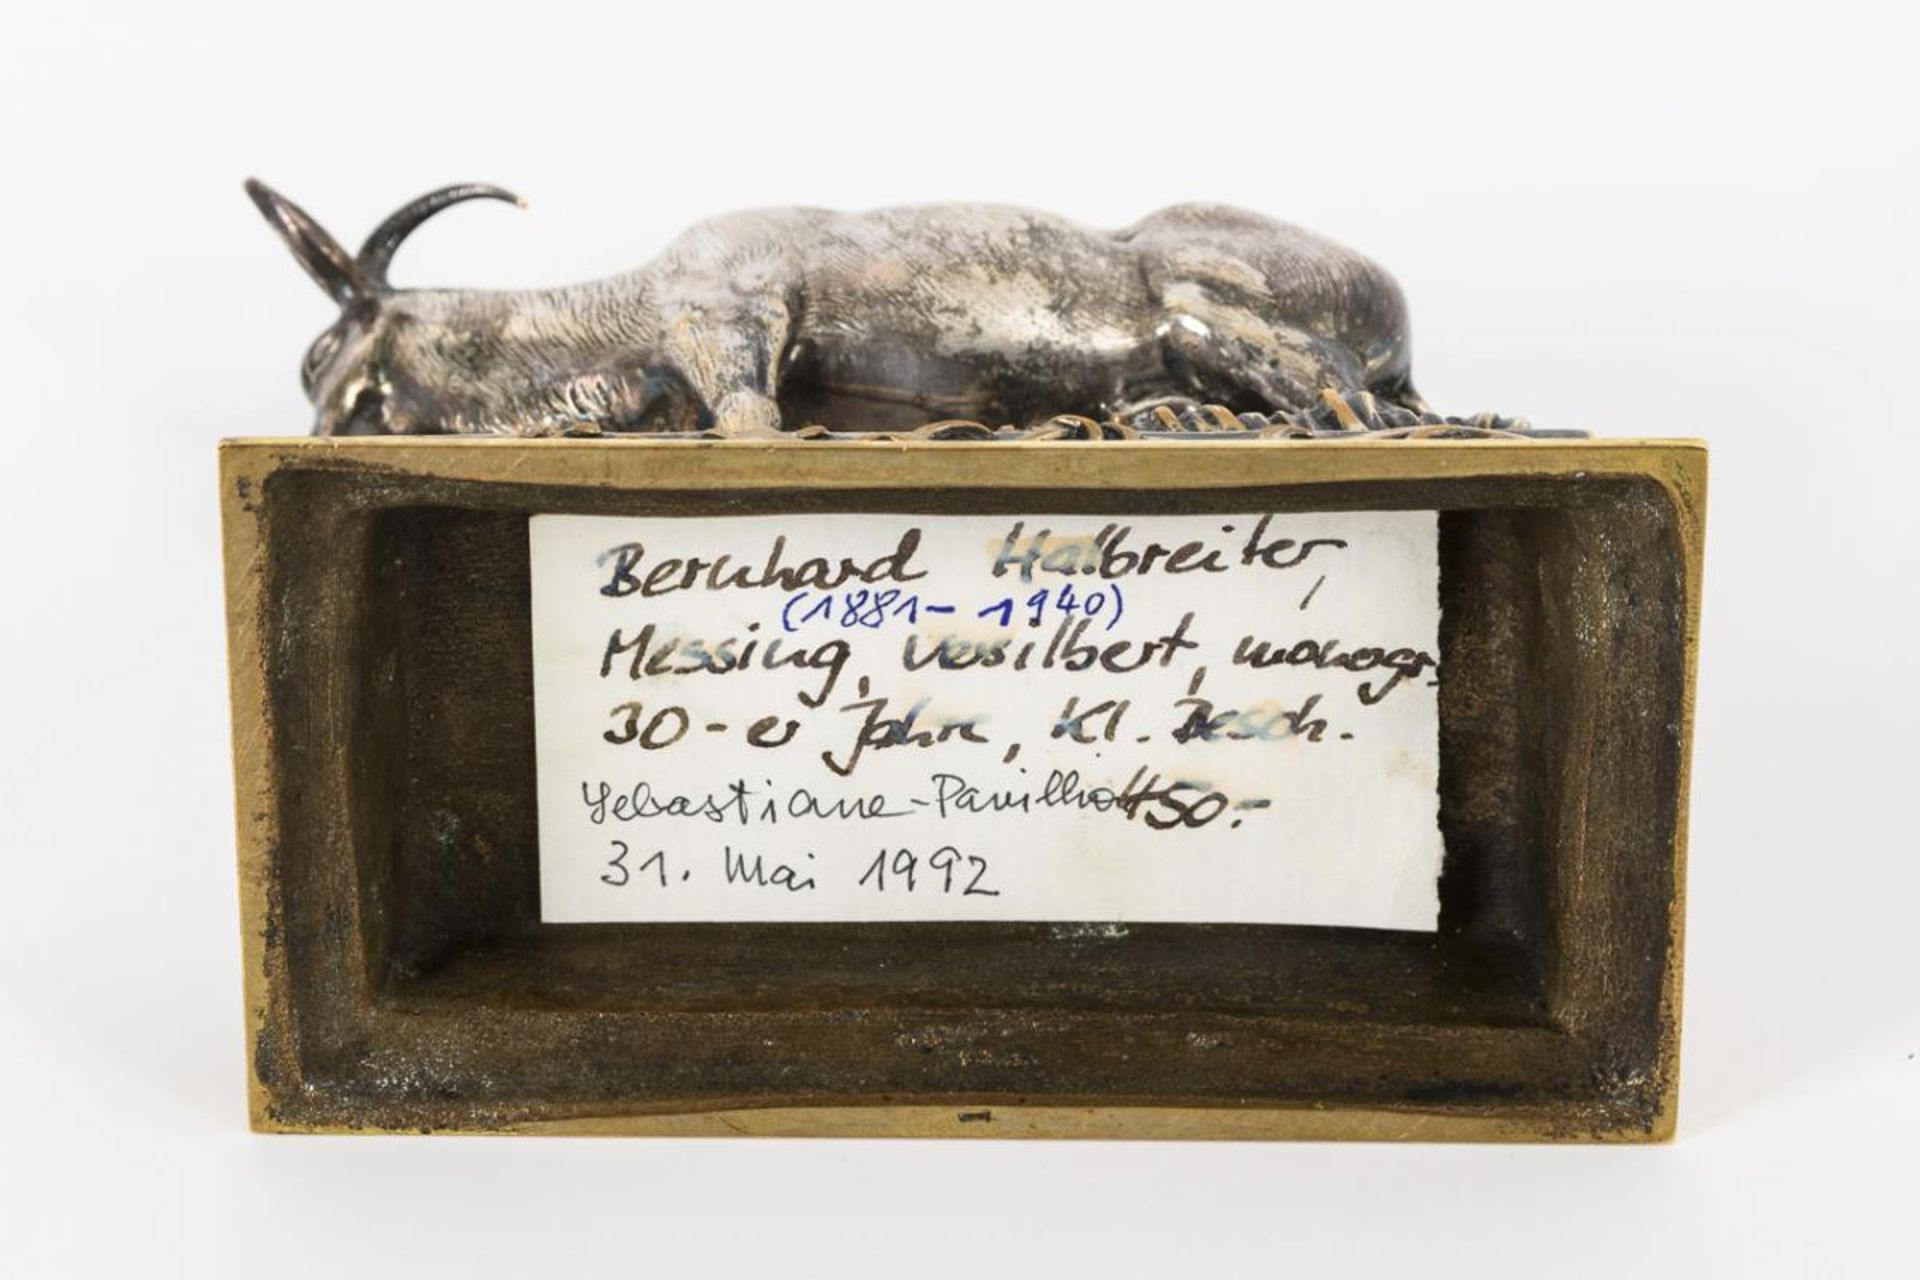 Bernhard Halbreiter,
(1881-1940)
Messing, versilbert, monogr.
30-er Jahre, Kl. Besch.
Sebastiane-Pavillon 450.-
31. Mai 1992